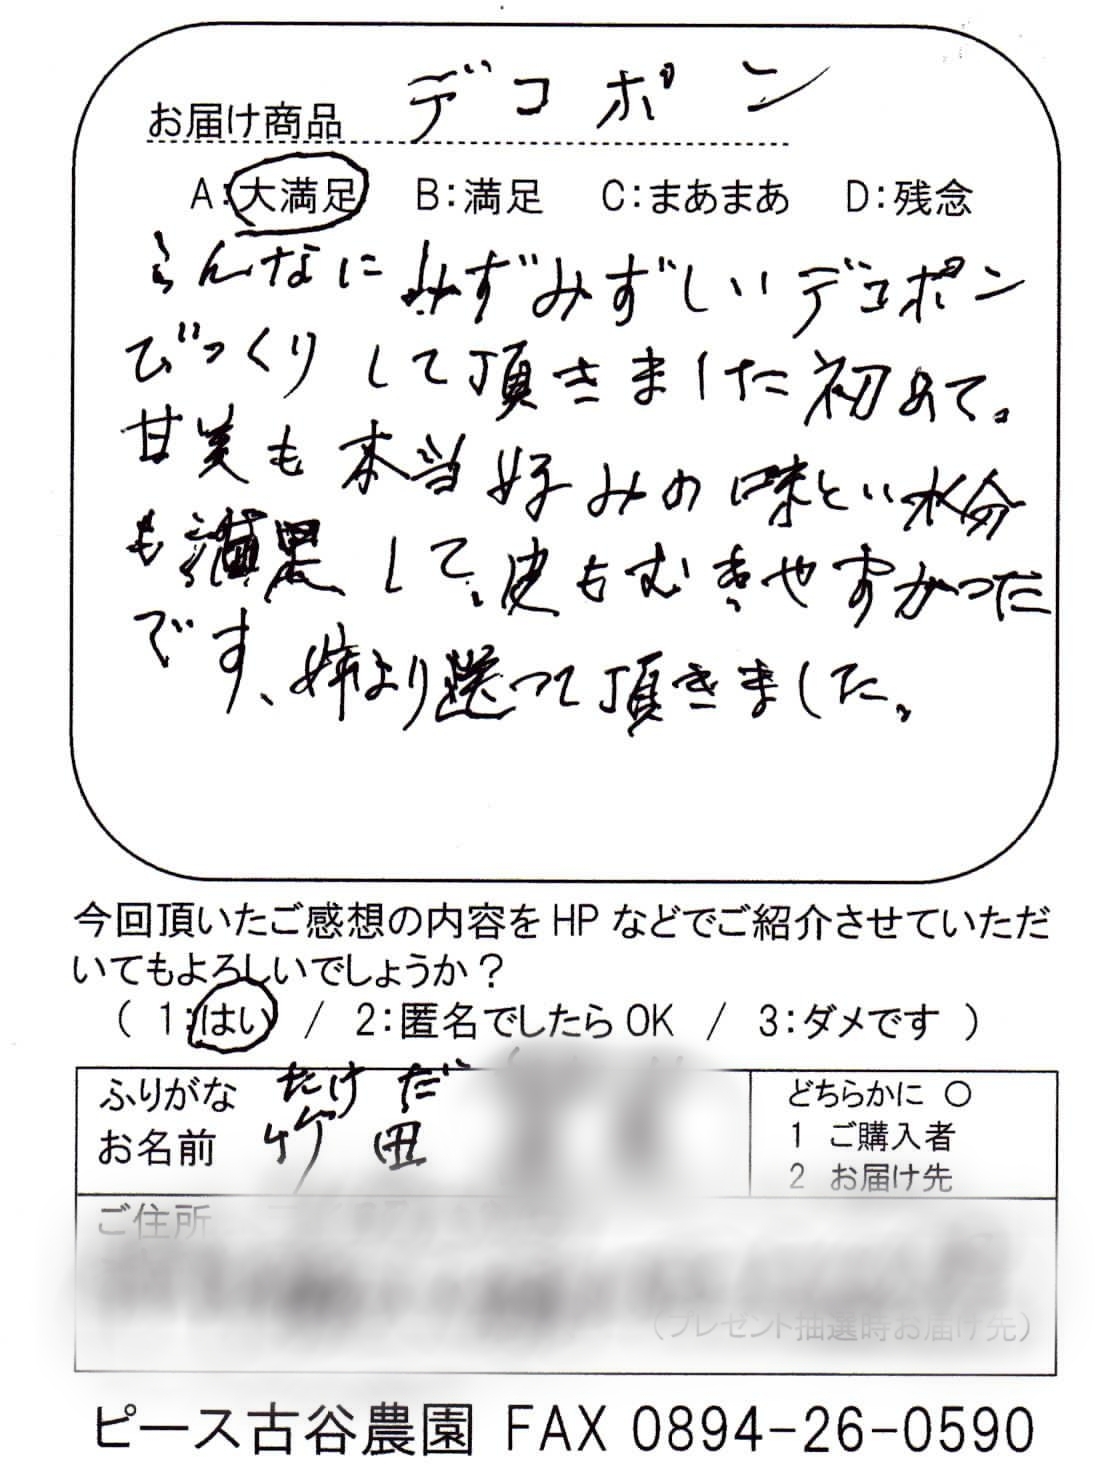 お届け商品 デコポン
A:大満足 B:満足 C:まあまあ D:残念
こんなにみずみずしいデコポン
びっくりして頂きました初めて。
甘美も本当好みの味とい水分
も満足して、皮もむきやすかった
です、姉より送って頂きました。
今回頂いたご感想の内容をHPなどでご紹介させていただ
いてもよろしいでしょうか？
( 1:はい / 2:匿名でしたらOK / 3:ダメです )
ふりがな たけだ
お名前 竹田
どちらかに ○
1 ご購入者
2 お届け先
ご住所
(プレゼント抽選時お届け先)
ピース古谷農園 FAX 0894-26-0590